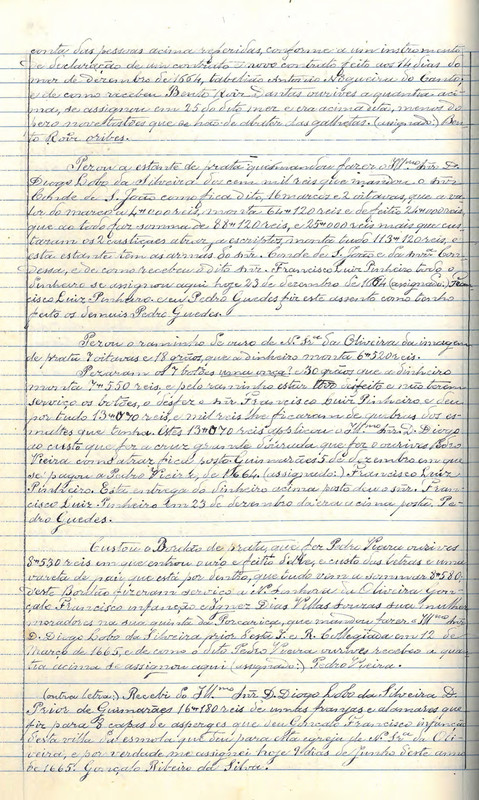 conta das pessoas acima referidas, conforme a um instromento
e declaração de um contrato e novo contrato feito aos 14 dias do
mez de dezembro de 1664, tabelião Antonio Nogueira do Canto,
e de como recebeu Bento Roiz d'antas ourives a quantia aci-
ma, se assignou em 25 do dito mez e era acima dita, menos do
hero nove tostões que se hão de abater das galhetas. (assignado:) Ben-
to Roiz oribes.
Pezou a estante de prata que mandou fazer o Illmo Snr. D.
Diogo Lobo da Silveira dos cem mil reis que mandou o Snr
Conde de S. João como fica dito, 16 marcos e 2 oitavas, que a va-
lor do marco a 4#000 reis, monta 64#120 reis e de feitio 24#000 reis,
que ao todo faz somma de 88#120, e 25#000 reis mais que cus-
taram os reastiçaes a bror, a escriptos, monta tudo 113#120 reis, e
esta estante tem as armas do Snr. Conde de S. João e da Snra. Con-
dessa, e de como recebeu o dito snr. Francisco Luiz Pinheiro todo o
dinheiro se assignou aqui hoje 23 de dezembro de 1664 (assignado:) Fran-
cisco Luiz Pinheiro e eu Pedro Guedes fiz este assento como tenho
feito os demais Pedro Guedes.
Pezou o raminho de ouro de N. Sra. da Oliveira da imagem
de prata 7 oitavas e 18 grãos, que a dinheiro monta 6#520 reis.
Pezaram os 7 botões uma onça e 30 grãos que a dinheiro
monta 7#550 reis, e pelo raminho estar desfeito e não terem
serviço os botões, o desfez o snr Francisco Luiz Pinheiro e deu
por tudo 13#070 reis, e mil reis lhe ficaram de quebras dos es-
maltes que tinha. Estes 13#070 reis applicou o Illmo Snr. D. Diogo
ao cristo que fez a cruz grande d'ersula que fez o ourives Pedro
Vieira com sutraz fica posto Guimarães 5 de dezembro em que
se pagou a Pedro Vieira, de 1664. (assignado:) Francisco Luiz
Pinheiro. Esta entrega do dinheiro acima posto deu o snr. Fran-
cisco Luiz Pinheiro em 23 de dezembro da era acima posta. Pe-
dro Guedes.
Custou o Bordão de prata, que fez Pedro Vieira ourives
8#530 reis em que entrou ouro e feitio d'elle, e custo das letras e uma
vareta de pau que está por dentro, que tudo vem a sommar 8#580
deste Bordão fizeram serviço a N. Senhora da Oliveira Gon-
çalo Francisco infanção e Ignez Dias Villas Grizas sua mulher
moradores na sua quinta da Porcariça, que mandou fazer o Illmo snr
D. Diogo Lobo da Silveira prior d'esta I. e R. Collegiada em 12 de
Março de 1665, e de como o dito Pedro Vieira ourives recebeu a quan-
tia acima se assignou aqui (assignado:) Pedro Vieira.
(outra letra:) Recebi do Illmo Snr D. Diogo Lobo da Silveira D.
Prior de Guimarães 16#180 reis de umas franjas e alamares que
fiz para 3 capas de asperges que deu Gonçalo Francisco infanção
d'esta villa d'esmola que deu para esta egreja de N. Sra. da Oli-
veira, e por verdade me assignei hoje 4 dias de Junho d'este anno
de 1665. Gonçalo Ribeiro da Silva.